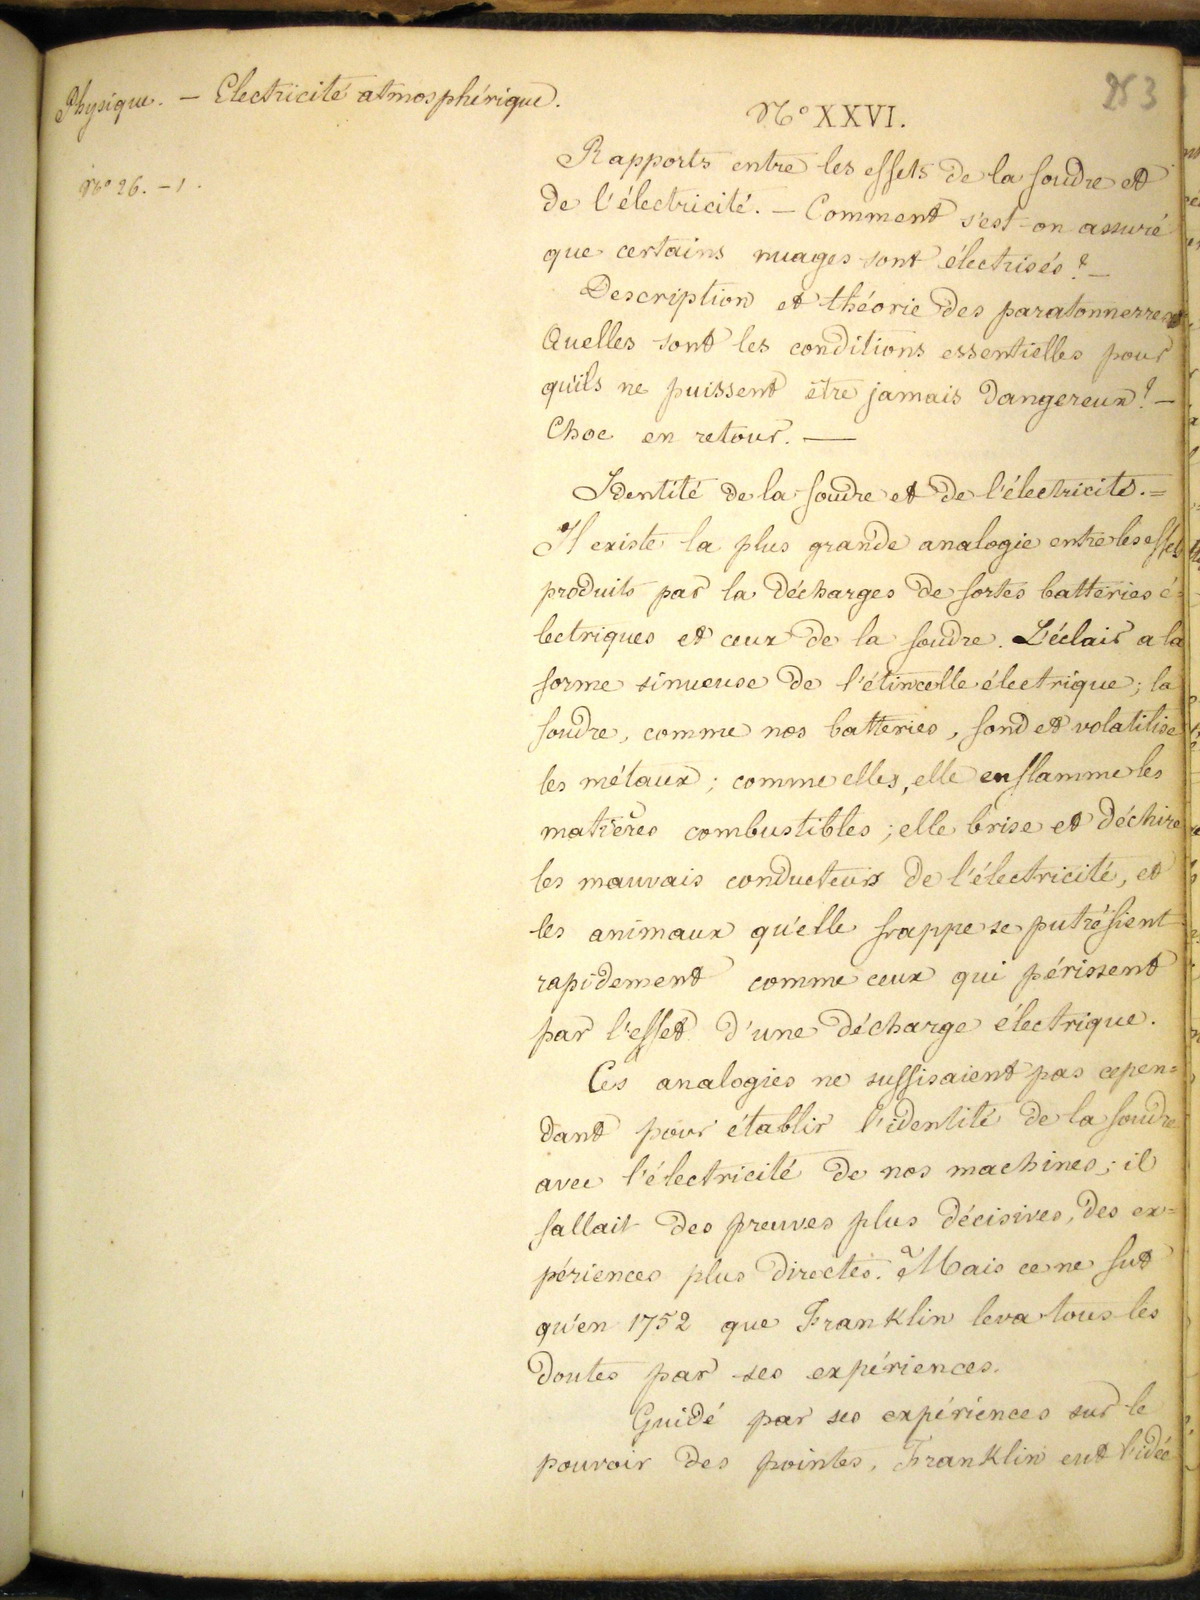 Physique. — Electricité atmosphérique.
253
N° XXVI.
N° 26. – 1.
Rapports entre les effets de la foudre et
de l'électricité. — Comment s'est-on assuré
que certains nuages sont électrisés? —
Description et théorie des paratonnerres
Quelles sont les conditions essentielles pour
qu'ils ne puissent être jamais dangereux? —
Choc en retour. —
Identité de la foudre et de l'électricité. =
Il existe la plus grande analogie entre les effets
produits par la décharges de fortes batteries é=
lectriques et ceux de la foudre. L'éclair a la
forme sinueuse de l'étincelle électrique; la
foudre, comme nos batteries, fond et volatilise
les métaux; comme elles, elle enflamme les
matières combustibles; elle brise et déchire
les mauvais conducteurs de l'électricité, et
les animaux qu'elle frappe se putréfient
rapidement comme ceux qui périssent
par l'effet d'une décharge électrique.
Ces analogies ne suffisaient pas cepen=
dant pour établir l'identité de la foudre
avec l'électricité de nos machines; il
fallait des preuves plus décisives, des ex=
périences plus directes. Mais ce ne fut
qu'en 1752 que Franklin leva tous les
doutes par ses expériences.
Guidé par ses expériences sur le
pouvoir des pointes, Franklin eut l'idée